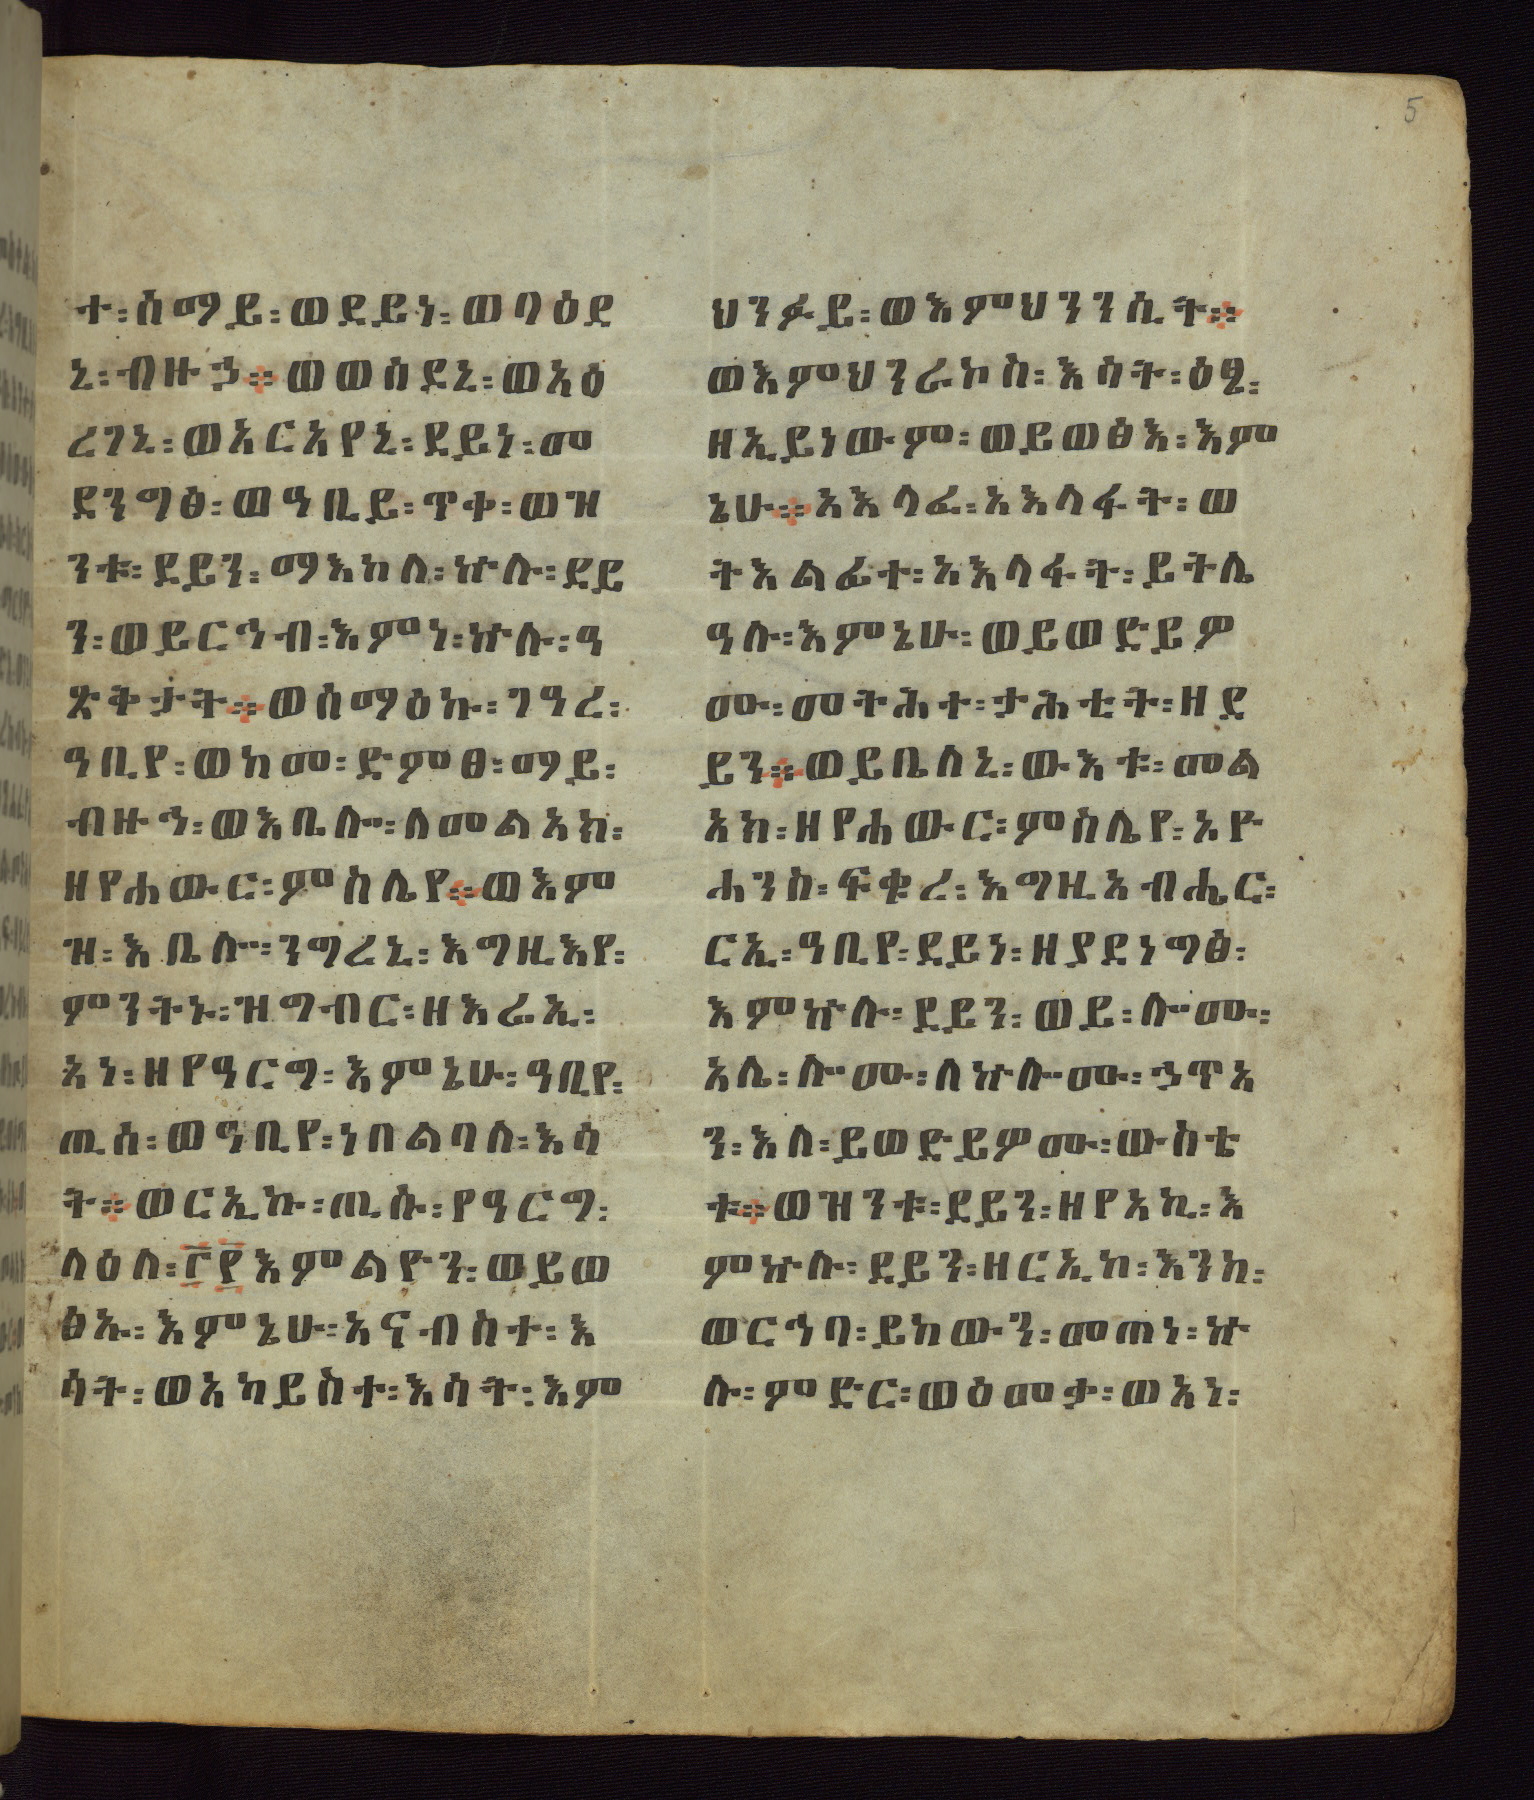 5
ተ፡ሰማይ፡ወደይነ፡ወባዕደ
ኒ፡ብዙኃ፨ወወሰደኒ፡ወአዕ
ረገኒ፡ወአርአየኒ፡ደይነ፡መ
ደንግፅ፡ወዓቢይ፡ጥቀ፡ወዝ
ንቱ፡ደይን፡ማእከለ፡ኵሉ፡ደይ
ን፡ወይርኅብ፡እምነ፡ኵሉ፡ዓ
ጽቅታት፨ወሰማዕኩ፡ገዓረ፡
ዓቢየ፡ወከመ፡ድምፀ፡ማይ፡
ብዙኅ፡ወእቤሎ፡ለመልአክ፡
ዘየሐውር፡ምስሌየ፨ወእም
ዝ፡እቤሎ፡ንግረኒ፡እግዚእየ፡
ምንትኑ፡ዝግብር፡ዘእሬኢ፡
አነ፡ዘየዓርግ፡እምኔሁ፡ዓቢየ፡
ጢሰ፡ወዓቢየ፡ነበልባለ፡እሳ
ት፨ወርኢኩ፡ጢሱ፡የዓርግ፡
ላዕለ፡፫፻እምልዮን፡ወይወ
ፅኡ፡እምኔሁ፡አናብስተ፡እ
ሳት፡ወአካይስተ፡እሳት፡እም
ህንፉይ፡ወእምህንንሲት፨
ወእምህንራኮስ፡እሳት፡ዕፄ፡
ዘኢይነውም፡ወይወፅእ፡እም
ኔሁ፨አእላፈ፡አእላፋት፡ወ
ትእልፊተ፡አእላፋት፡ይትሌ
ዓሉ፡እምኔሁ፡ወይወድይዎ
ሙ፡መትሕተ፡ታሕቲት፡ዘደ
ይን፨ወይቤለኒ፡ውእቱ፡መል
አክ፡ዘየሐውር፡ምስሌየ፡ኦዮ
ሐንስ፡ፍቁረ፡እግዚአብሔር፡
ርኢ፡ዓቢየ፡ደይነ፡ዘያደነግፅ፡
እምኵሉ፡ደይን፡ወይ፡ሎሙ፡
አሌ፡ሎሙ፡ለኵሎሙ፡ኃጥአ
ን፡እለ፡ይወድይዎሙ፡ውስቴ
ቱ፨ወዝንቱ፡ደይን፡ዘየአኪ፡እ
ምኵሉ፡ደይን፡ዘርኢከ፡እንከ፡
ወርኅባ፡ይከውን፡መጠነ፡ኵ
ሉ፡ምድር፡ወዕመቃ፡ወአነ፡